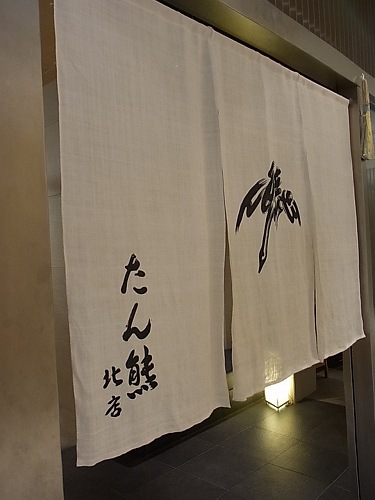 たん熊
北店